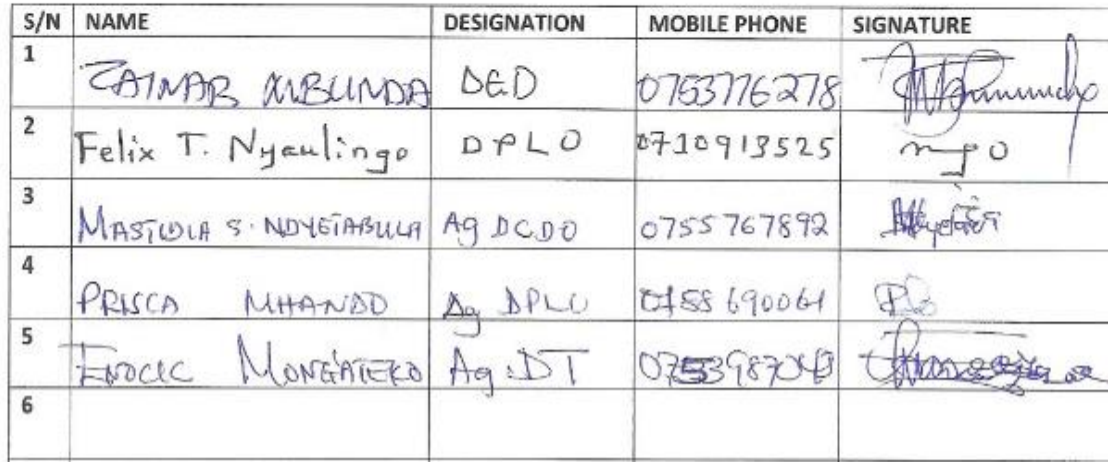 S/N NAME DESIGNATION MOBILE PHONE SIGNATURE
1 ZAINAB MBUNDA DED 0753776278
2 Felix T. Nyaulingo DPLO 0710913525
3 MASTIDIA S. NDYETABULA Ag DCDO 0755767892
4 PRISCA MHANDO Ag DPLO
5 Ag. DT
6